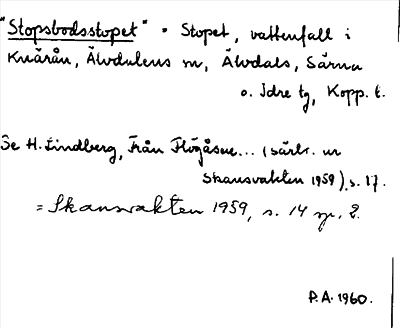 "Stopsbodsstopet" = Stopet, vattenfall i
Knärån, Älvdalens sn, Älvdals, Särna
o. Idre tg, Kopp. l.
Se H. Lindberg, Från Flögåsne... (särtr. ur
Skansvakten 1959), s. 17.
= Skansvakten 1959, s. 14 sp. 2.
P.A. 1960.